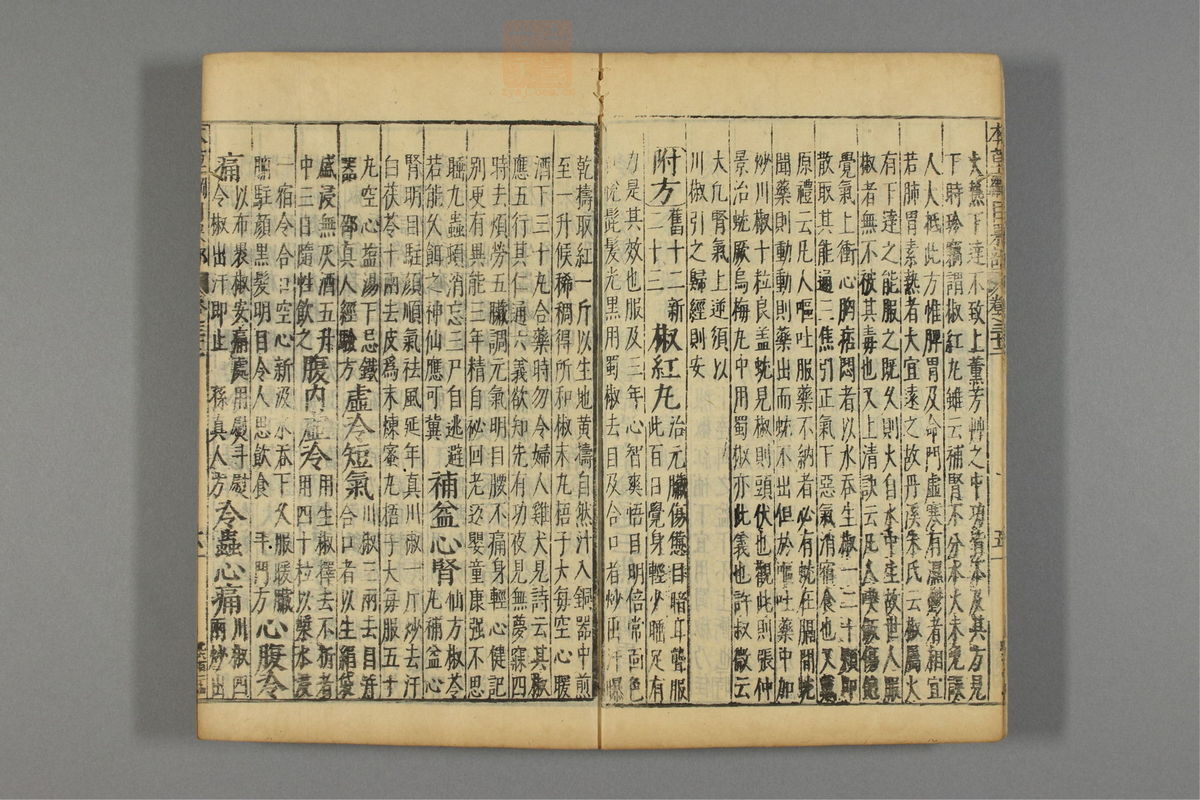 火熱下達不致上薰芳艸之中功皆不及其方見
下時珍竊謂椒紅丸雖云補腎不分水火未免誤
人人秪此方惟脾胃及命門虛寒有濕鬱者相宜
若肺胃素熱者大宜遠之故丹溪朱氏云椒屬火
有下達之能服之既久則火自水中生故世人服
椒者無不被其毒也又上清訣云凡人喫飯傷飽
覺氣上衝心胸痞悶者以水吞生椒一二十顆即
散取其能通三焦引正氣下惡氣消宿食也又戴
原禮云凡人嘔吐服藥不納者必有蚘在膈間蚘
聞藥則動動則藥出而蚘不出但於嘔吐藥中加
炒川椒十粒良蓋蚘見椒則頭伏也觀此則張仲
景治蚘厥烏梅丸中用蜀椒亦此義也許叔微云
大凡腎氣上逆須以
川椒引之歸經則安
附方舊十二新二十三 椒紅丸治元臟傷憊目暗耳聾服此百日覺身輕少睡足有
力是其效也服及三年心智爽悟目明倍常面色
紅悅髭髮光黑用蜀椒去目及合口者炒出汗曝
乾擣取紅一斤以生地黃擣自然汁入銅器中煎
至一升候稀稠得所和椒末丸梧子大每空心暖
酒下三十丸合藥時勿令婦人雞犬見詩云其椒
應五行其仁通六義欲知先有功夜見無夢寐四
時去煩勞五臟調元氣明目腰不痛身輕心健記
別更有異能三年精自祕回老返嬰童康強不思
睡九蟲頓消忘三尸自逃避
若能久餌之神仙應可冀 補益心腎仙方椒苓丸補益心
腎明目駐顏順氣祛風延年真川椒一斤炒去汗
白茯苓十兩去皮爲末煉蜜丸梧子大每服五十
丸空心鹽湯下忌鐵
器 邵真人經驗方 虛冷短氣川椒三兩去目并合口者以生絹袋
盛浸無灰酒五升
中三日隨性飲之 腹內虛冷用生椒擇去不拆者用四十粒以漿水浸
一宿令合口空心新汲水吞下久服暖臟
腑駐顏黑髮明目令人思飲食 斗門方 心腹冷
痛以布裹椒安痛處用熨斗熨
令椒出汗即止 孫真人方 冷蟲心痛川椒四兩炒出